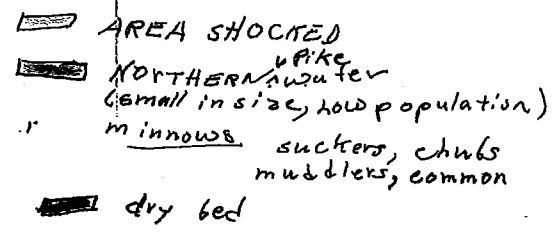 AREA SHOCKED
NORTHERN Pike water
(small in size, low population)
r minnows suckers, chubs
muddlers, common
dry bed